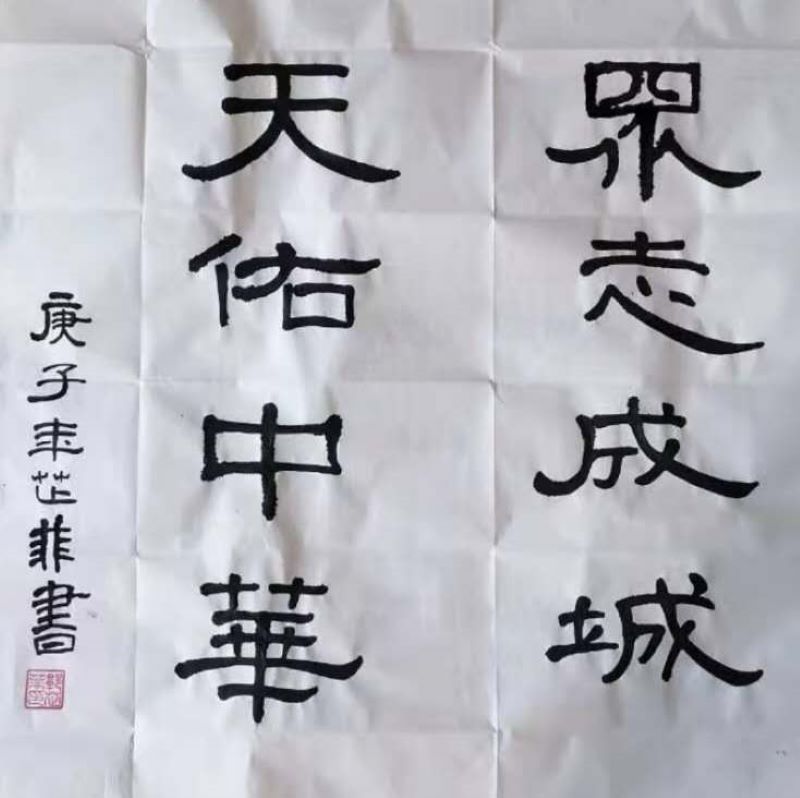 眾志成城
天佑中華
庚子年芷菲書